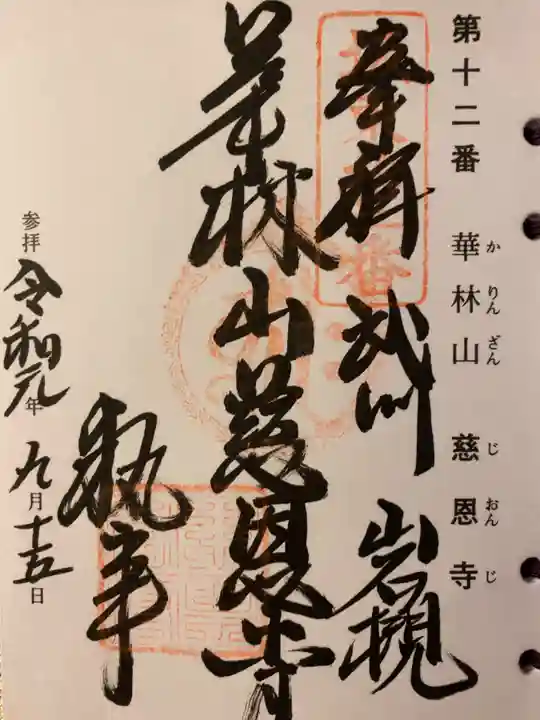 第十二番 華林山 慈恩寺
か りん ざん じ おん じ
奉拝 武州 岩槻
華林山慈恩寺
執事
参拝 令和元年 九月十五日